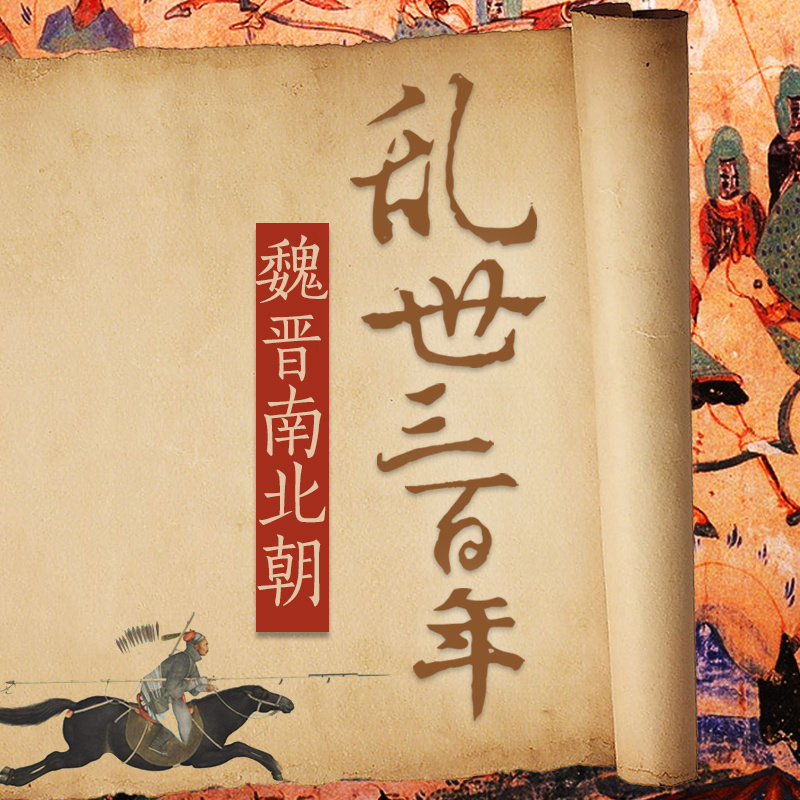 乱世三百年
魏晋南北朝